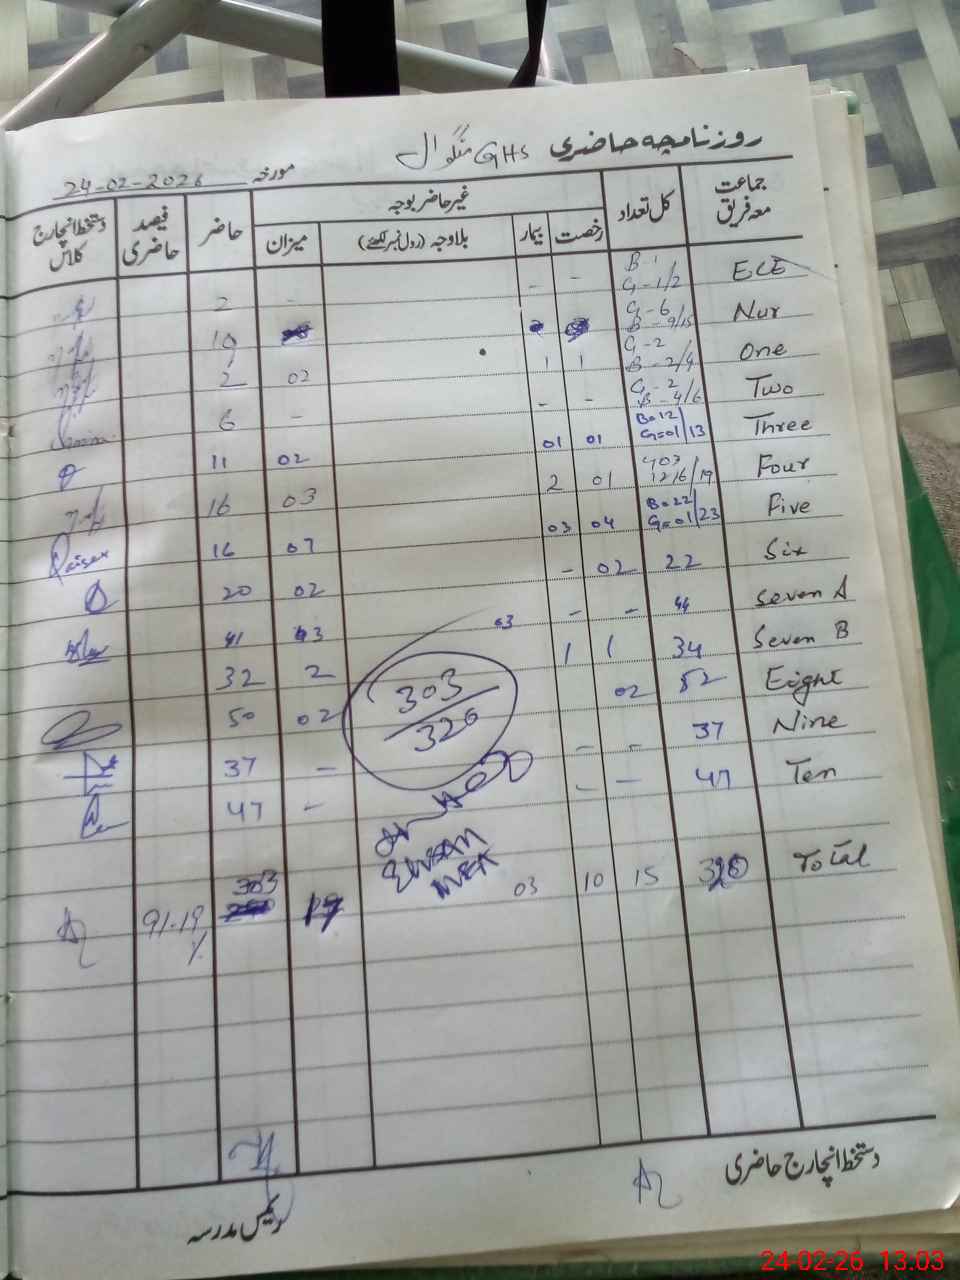 روزنامچہ حاضری GHS منگوال
مورخہ 24-02-2026
جماعت معہ فریق کل تعداد غیر حاضر بوجہ حاضر فیصد حاضری دستخط انچارج کلاس
رخصت بیمار بلاوجہ (رول نمبر لکھئے) میزان
ECE B-1 G-1/2 - - - 2
Nur G-6 B-9/15
One G-2 B-2/4 1 1 02 2
Two G-2 B-4/6 - - - 6
Three B=12 G=01/13 01 01 02 11
Four 19 01 2 03 16
Five B=22 G=01/23 04 03 07 16 Qaiser
Six 22 02 - 02 20
Seven A 44 - - 03 41
Seven B 34 1 1 2 32
Eight 52 02 02 50
Nine 37 - - - 37
Ten 47 - - - 47
303
326
MEA
Total 15 10 03 303 91-19 %
دستخط انچارج حاضری
رئیس مدرسہ
24-02-26 13.03